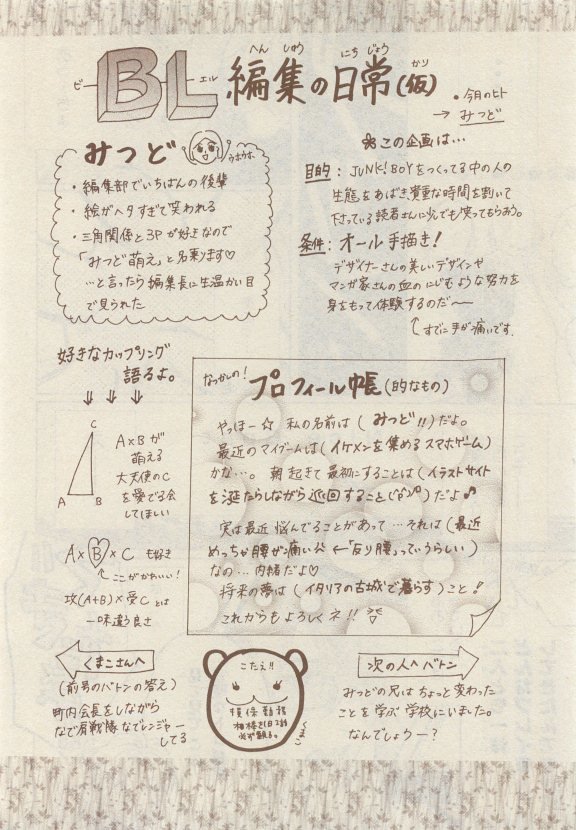 BL編集の日常(仮)
ビー エル へんしゅう にちじょう かり
・今月のヒト
→ みつど
みつど
ウホウホ
・編集部でいちばんの後輩
・絵がヘタすぎて笑われる
・三角関係と3Pが好きなので
「みつど萌え」と名乗ります♡
…と言ったら編集長に生温かい目
で見られた
❀この企画は…
目的: JUNK!BOYをつくってる中の人の
生態をあばき貴重な時間を割いて
下さっている読者さんに少しでも笑ってもらう。
条件: オール手描き!
デザイナーさんの美しいデザインや
マンガ家さんの血のにじむような努力を
身をもって体験するのだ〜
すでに手が痛いです。
好きなカップリング
語るよ。
⇓ ⇓ ⇓
C
A B
A×Bが
萌える
大天使のC
を愛でる会
してほしい
A×B×C も好き
ここがかわいい!
攻(A+B)×受C とは
一味違う良さ
なつかしの!
プロフィール帳(的なもの)
やっほー☆ 私の名前は(みつど!!)だよ。
最近のマイブームは(イケメンを集めるスマホゲーム)
かな…。朝起きて最初にすることは(イラストサイト
を涎たらしながら巡回すること)だよ♪
実は最近悩んでることがあって…それは(最近
めっちゃ腰が痛い ←「反り腰」っていうらしい)
なの…内緒だよ♡
将来の夢は(イタリアの古城で暮らす)こと!
これからもよろしくネ!!
くまこさんへ
(前号のバトンの答え)
町内会長をしながら
なで肩戦隊なでレンジャー
してる
こたえ!!
くまこ
次の人へバトン
みつどの兄はちょっと変わった
ことを学ぶ学校にいました。
なんでしょうー?